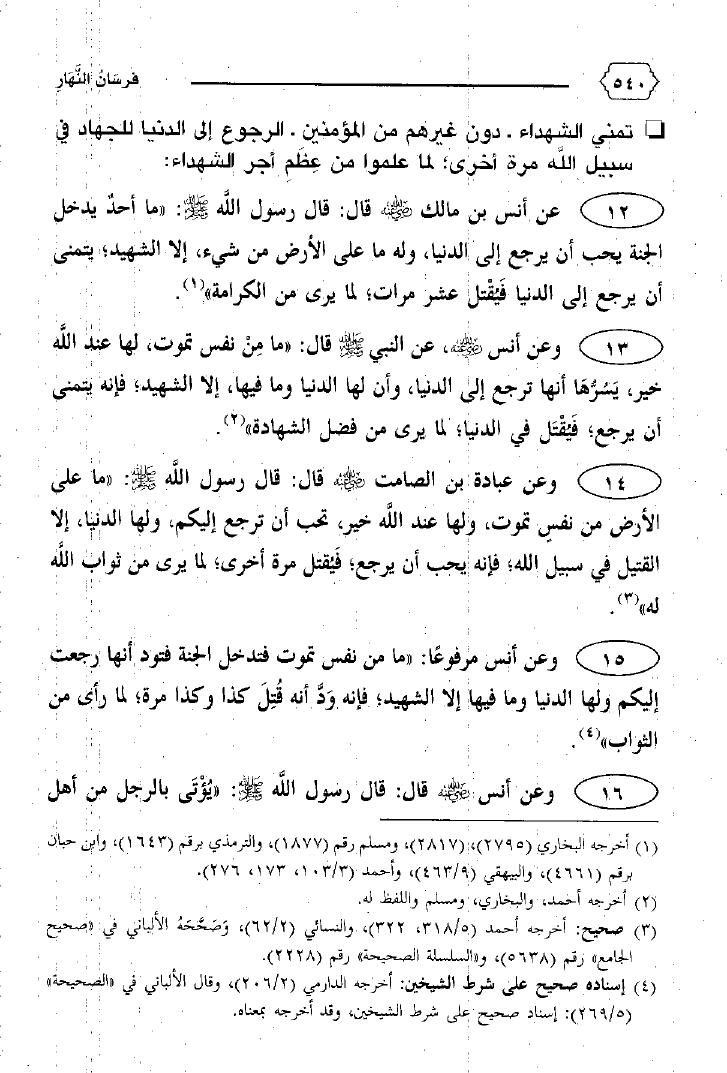 ٥٤٠ فرسَانُ النَّهَارِ
❑ تمني الشهداء . دون غيرهم من المؤمنين . الرجوع إلى الدنيا للجهاد في
سبيل اللَّه مرة أخرى؛ لما علموا من عِظَم أجر الشهداء:
١٢ عن أنس بن مالك رضي الله عنه قال: قال رسول اللَّه ﷺ: «ما أحدٌ يدخل
الجنة يحب أن يرجع إلى الدنيا، وله ما على الأرض من شيء، إلا الشهيد؛ يتمنى
أن يرجع إلى الدنيا فَيُقْتل عشر مرات؛ لما يرى من الكرامة»(١).
١٣ وعن أنس رضي الله عنه، عن النبي ﷺ قال: «ما مِنْ نفس تموت، لها عند اللَّه
خير، يَسُرُّهَا أنها ترجع إلى الدنيا، وأن لها الدنيا وما فيها، إلا الشهيد؛ فإنه يتمنى
أن يرجع؛ فَيُقْتَل في الدنيا؛ لما يرى من فضل الشهادة»(٢).
١٤ وعن عبادة بن الصامت رضي الله عنه قال: قال رسول اللَّه ﷺ: «ما على
الأرض من نفسٍ تموت، ولها عند اللَّه خير، تحب أن ترجع إليكم، ولها الدنيا، إلا
القتيل في سبيل الله؛ فإنه يحب أن يرجع؛ فَيُقتل مرة أخرى؛ لما يرى من ثواب اللَّه
له»(٣).
١٥ وعن أنس مرفوعًا: «ما من نفس تموت فتدخل الجنة فتود أنها رجعت
إليكم ولها الدنيا وما فيها إلا الشهيد؛ فإنه وَدَّ أنه قُتِلَ كذا وكذا مرة؛ لما رأى من
الثواب»(٤).
١٦ وعن أنس رضي الله عنه قال: قال رسول اللَّه ﷺ: «يُؤْتَى بالرجل من أهل
(١) أخرجه البخاري (٢٧٩٥)، (٢٨١٧)، ومسلم رقم (١٨٧٧)، والترمذي برقم (١٦٤٣)، وابن حبان
برقم (٤٦٦١)، والبيهقي (٤٦٣/٩)، وأحمد (١٠٣/٣، ١٧٣، ٢٧٦).
(٢) أخرجه أحمد، والبخاري، ومسلم واللفظ له.
(٣) صحيح: أخرجه أحمد (٣١٨/٥، ٣٢٢)، والنسائي (٦٢/٢)، وَصَحَّحَهُ الألباني في «صحيح
الجامع» رقم (٥٦٣٨)، و«السلسلة الصحيحة» رقم (٢٢٢٨).
(٤) إسناده صحيح على شرط الشيخين: أخرجه الدارمي (٢٠٦/٢)، وقال الألباني في «الصحيحة»
(٢٦٩/٥): إسناد صحيح على شرط الشيخين، وقد أخرجه بمعناه.